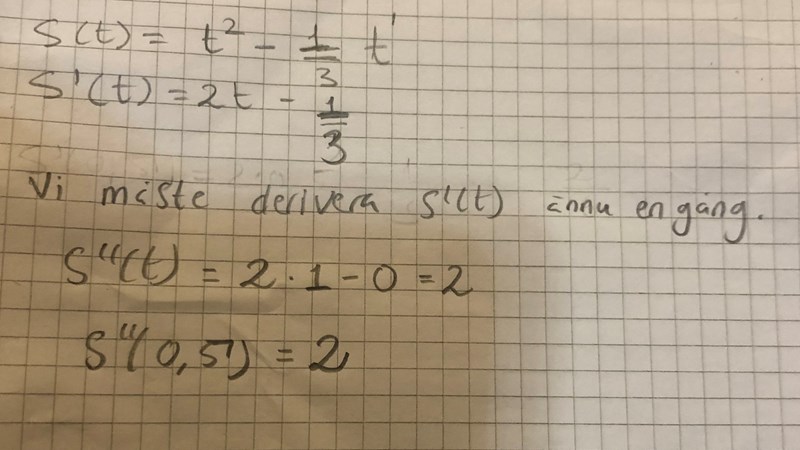 S(t) = t² - 1/3 t¹
S'(t) = 2t - 1/3
Vi måste derivera S'(t) ännu en gång.
S''(t) = 2 · 1 - 0 = 2
S''(0,5) = 2